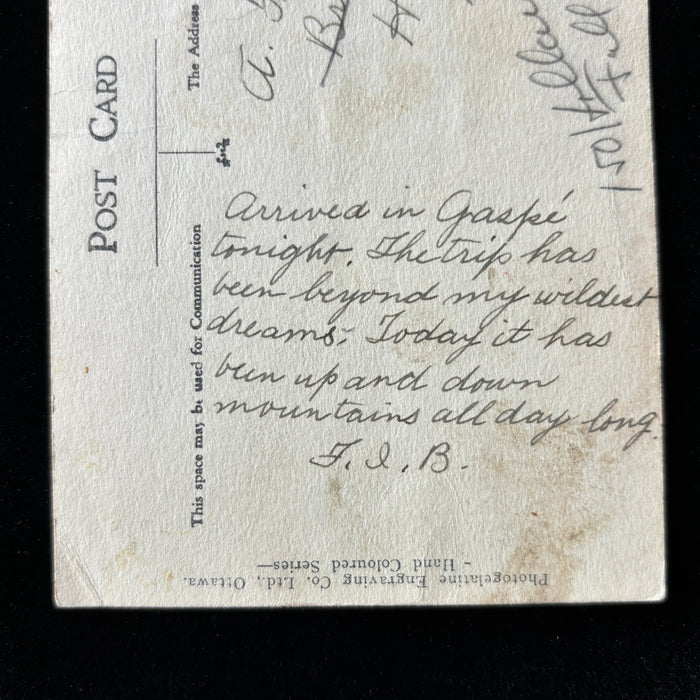 POST CARD
The Address
This space may be used for Communication
Arrived in Gaspé
tonight. The trip has
been beyond my wildest
dreams; Today it has
been up and down
mountains all day long.
F. I. B.
Photogelatine Engraving Co. Ltd., Ottawa.
- Hand Coloured Series—